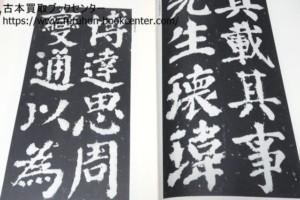 古本買取ブックセンター
https://www.furuhon-bookcenter.com/
具載其事
先生瓌瑋
博達思周
變通以為